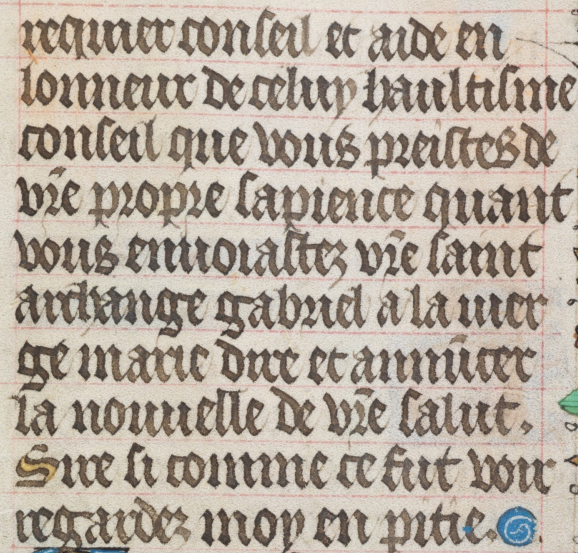 requier conseil et aide en
lonneur de celuy haultisme
conseil que vous preistes de
vr̃e propre sapience quant
vous enuoiastez vr̃e saint
archange gabriel a la vier
ge marie dire et annũcer
la nouuelle de vr̃e salut.
Sire si comme ce fut voir
regardez moy en pitie.